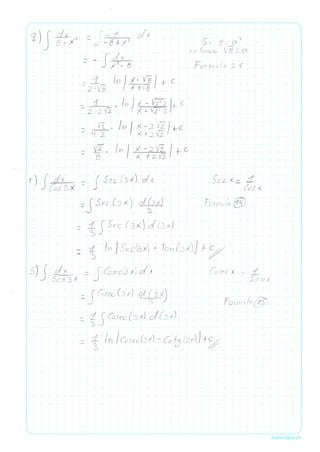 q) ∫ dx / (8 - x²) = ∫ -1 / (-8 + x²) dx
Si 8 = a²
entonces √8 = a
= - ∫ dx / (x² - 8)
Formula 21
= 1 / (2·√8) ln | (x - √8) / (x + √8) | + c
= 1 / (2·2√2) · ln | (x - √2²·2) / (x + √2²·2) | + c
= √2 / (4·2) · ln | (x - 2√2) / (x + 2√2) | + c
= √2 / 8 · ln | (x - 2√2) / (x + 2√2) | + c
r) ∫ dx / cos 3x = ∫ Sec (3x) dx
Sec x = 1 / cos x
= ∫ Sec (3x) d(3x) / 3
Formula 14
= 1/3 ∫ Sec (3x) d(3x)
= 1/3 ln | Sec(3x) + tan(3x) | + c
s) ∫ dx / Sen 3x = ∫ Cosec(3x) dx
Cosec x = 1 / Sen x
= ∫ Cosec (3x) d(3x) / 3
Formula 15
= 1/3 ∫ Cosec (3x) d(3x)
= 1/3 ln | Cosec(3x) - Cotg(3x) | + c